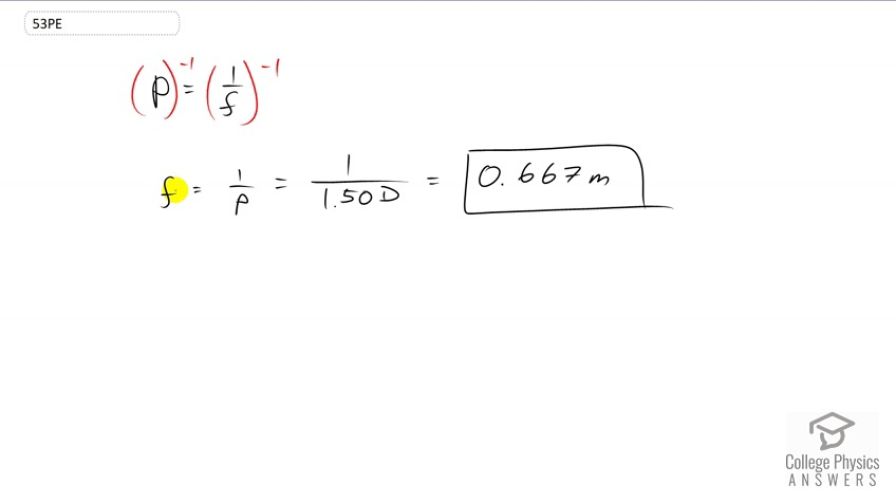 53PE
(P)⁻¹ = (1/f)⁻¹
f = 1/P = 1/1.50D = 0.667m
College Physics
ANSWERS